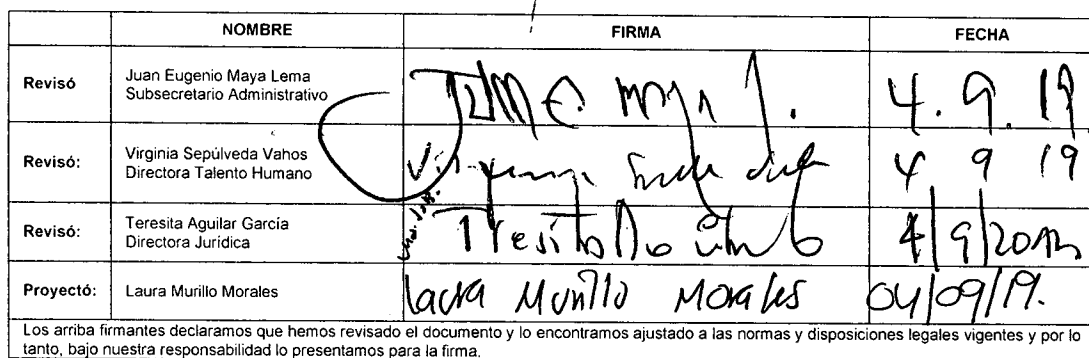 NOMBRE FIRMA FECHA
Revisó Juan Eugenio Maya Lema
Subsecretario Administrativo
4. 9. 19
Revisó: Virginia Sepúlveda Vahos
Directora Talento Humano
4 9 19
Revisó: Teresita Aguilar García
Directora Jurídica
4/9/2019
Proyectó: Laura Murillo Morales Laura Murillo Morales 04/09/19.
Los arriba firmantes declaramos que hemos revisado el documento y lo encontramos ajustado a las normas y disposiciones legales vigentes y por lo
tanto, bajo nuestra responsabilidad lo presentamos para la firma.